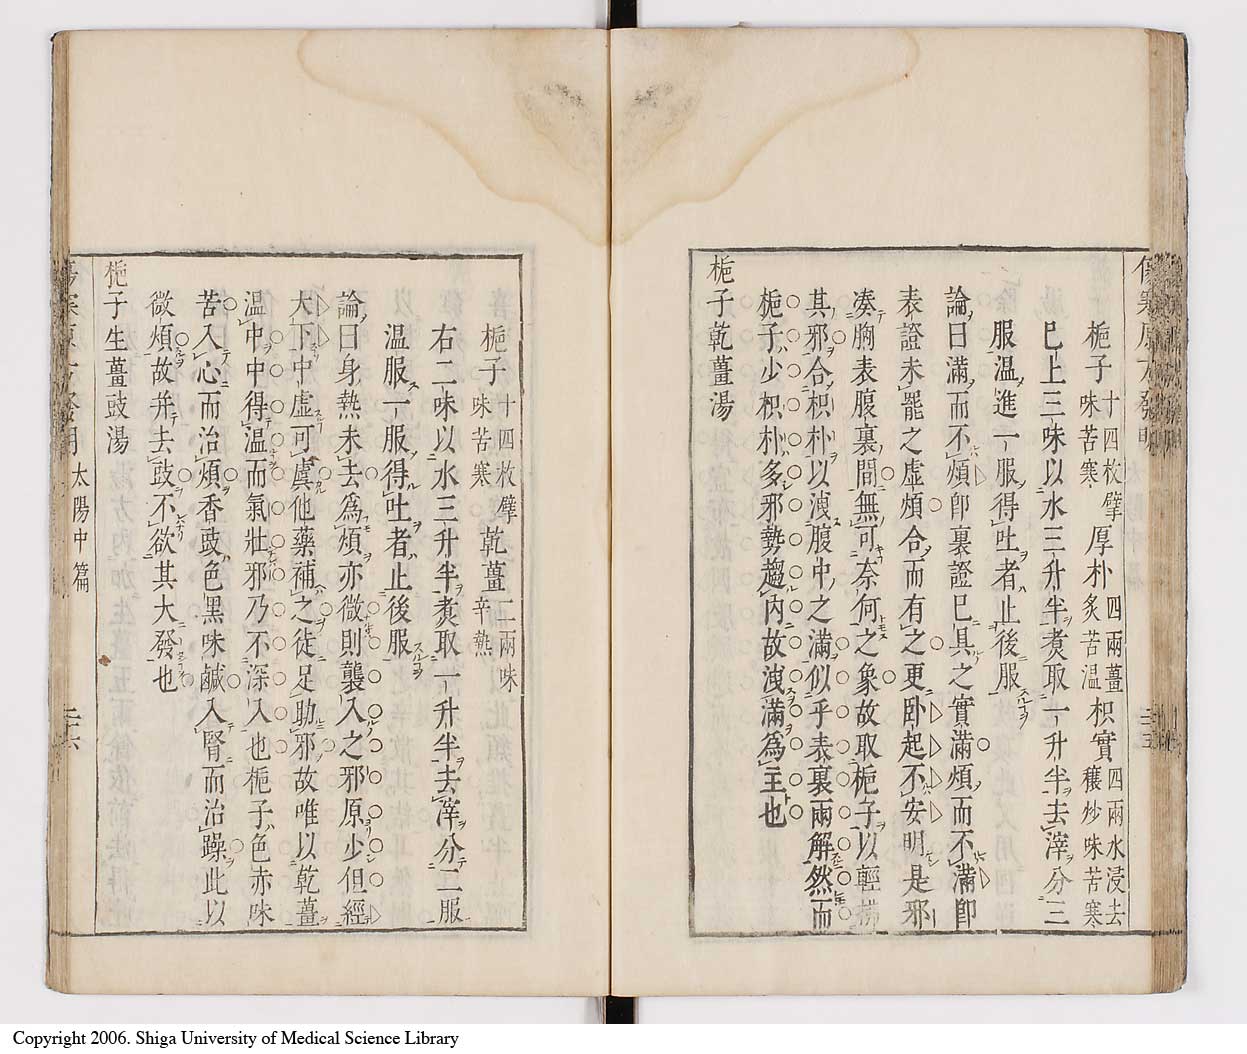 梔子十四枚擘味苦寒厚朴四兩薑炙苦温枳實四兩水浸去穰炒味苦寒
巳上三味以水三升半煑取一升半去滓分三
服温進一服得吐者止後服
論曰滿而不煩卽裏證已具之實滿煩而不滿卽
表證未罷之虛煩合而有之更卧起不安明是邪
湊胸表腹裏間無可奈何之象故取梔子以輕
其邪合枳朴以洩腹中之滿似乎表裏兩解然而
梔子少枳朴多邪勢趨內故洩滿爲主也
梔子乾薑湯
梔子十四枚擘味苦寒乾薑二兩味辛熱
右二味以水三升半煑取一升半去滓分二服
温服一服得吐者止後服
論曰身熱未去爲煩亦微則襲入之邪原少但經
大下中虛可虞他藥補之徒足助邪故唯以乾薑
温中中得温而氣壯邪乃不深入也梔子色赤味
苦入心而治煩香豉色黑味鹹入腎而治躁此以
微煩故并去豉不欲其大發也
梔子生薑豉湯
太陽中篇
二六
Copyright 2006. Shiga University of Medical Science Library